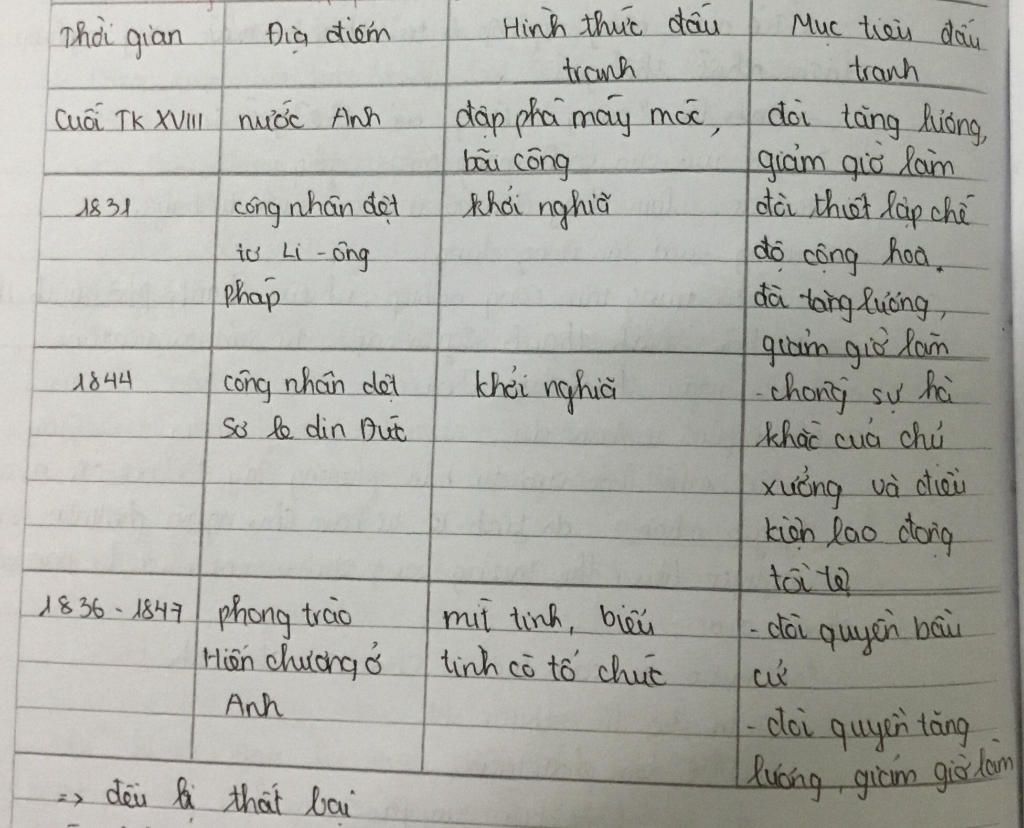 Thời gian Địa điểm Hình thức đấu Mục tiêu đấu
tranh tranh
Cuối TK XVIII nước Anh đập phá máy móc, đòi tăng lương,
bãi công giảm giờ làm
1831 công nhân dệt khởi nghĩa đòi thiết lập chế
tơ Li-ông độ cộng hoà.
pháp đòi tăng lương,
giảm giờ làm
1844 công nhân dệt khởi nghĩa - chống sự hà
Sơ lê din Đức khắc của chủ
xưởng và điều
kiện lao động
tồi tệ
1836 - 1847 phong trào mít tinh, biểu - đòi quyền bầu
Hiến chương ở tình có tổ chức cử
Anh - đòi quyền tăng
lương, giảm giờ làm
=> đều bị thất bại